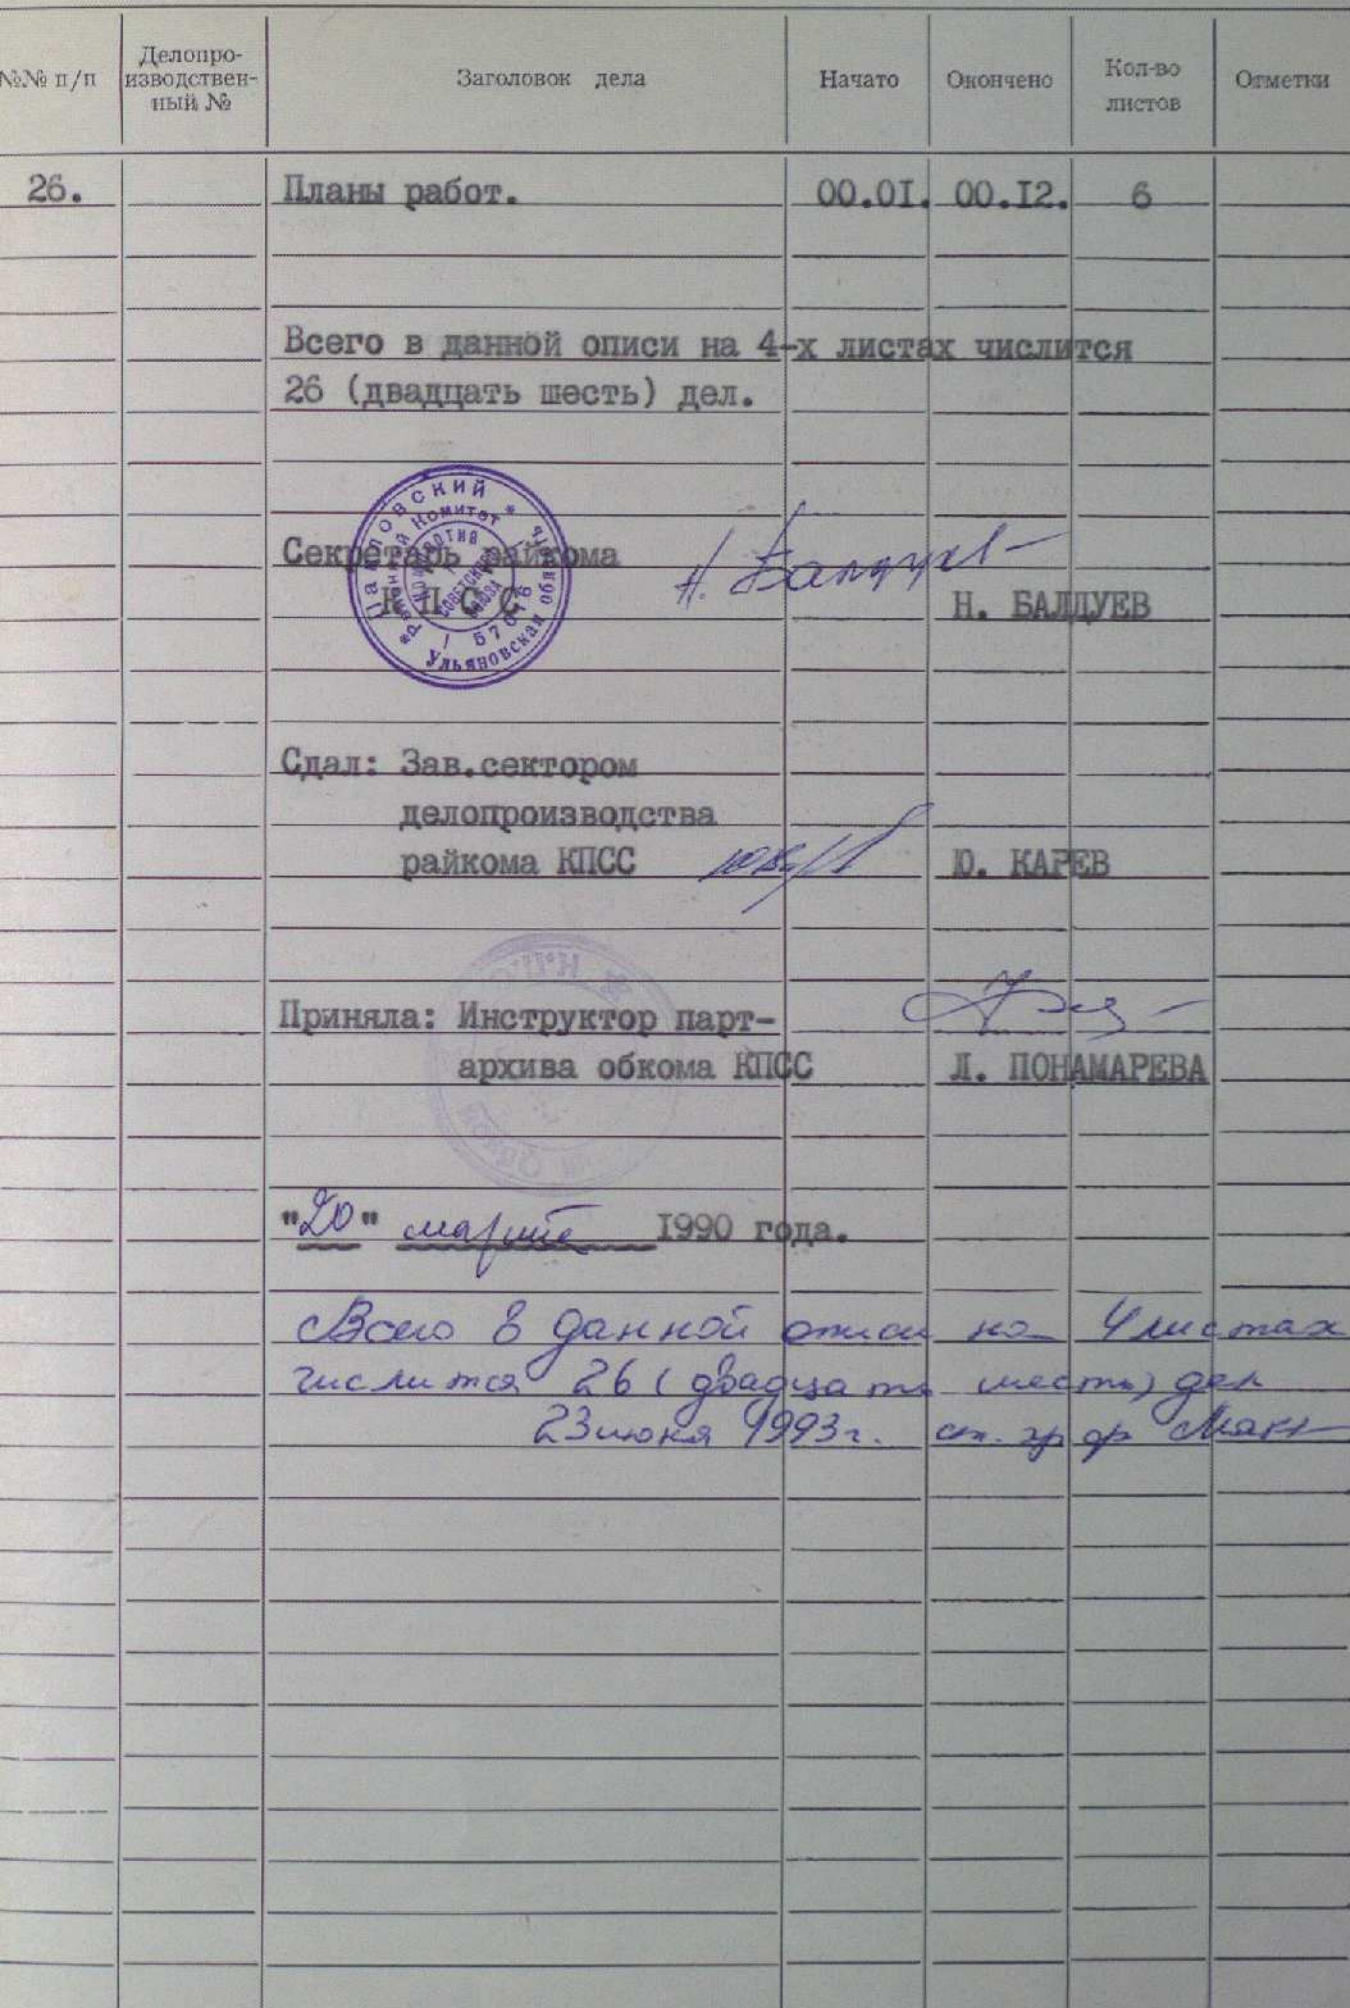 №№ п/п
Делопро-
изводствен-
ный №
Заголовок дела
Начато
Окончено
Кол-во
листов
Отметки
26. Планы работ. 00.01. 00.12. 6
Всего в данной описи на 4-х листах числится
26 (двадцать шесть) дел.
Павловский
Районный Комитет
Ульяновская область
Секретарь райкома
КПСС
Н. БАЛДУЕВ
Сдал: Зав.сектором
делопроизводства
райкома КПСС Ю. КАРЕВ
Приняла: Инструктор парт-
архива обкома КПСС Л. ПОНАМАРЕВА
"20" марта 1990 года.
Всего в данной описи на 4 листах
числится 26 (двадцать шесть) дел
23 июня 1993г.